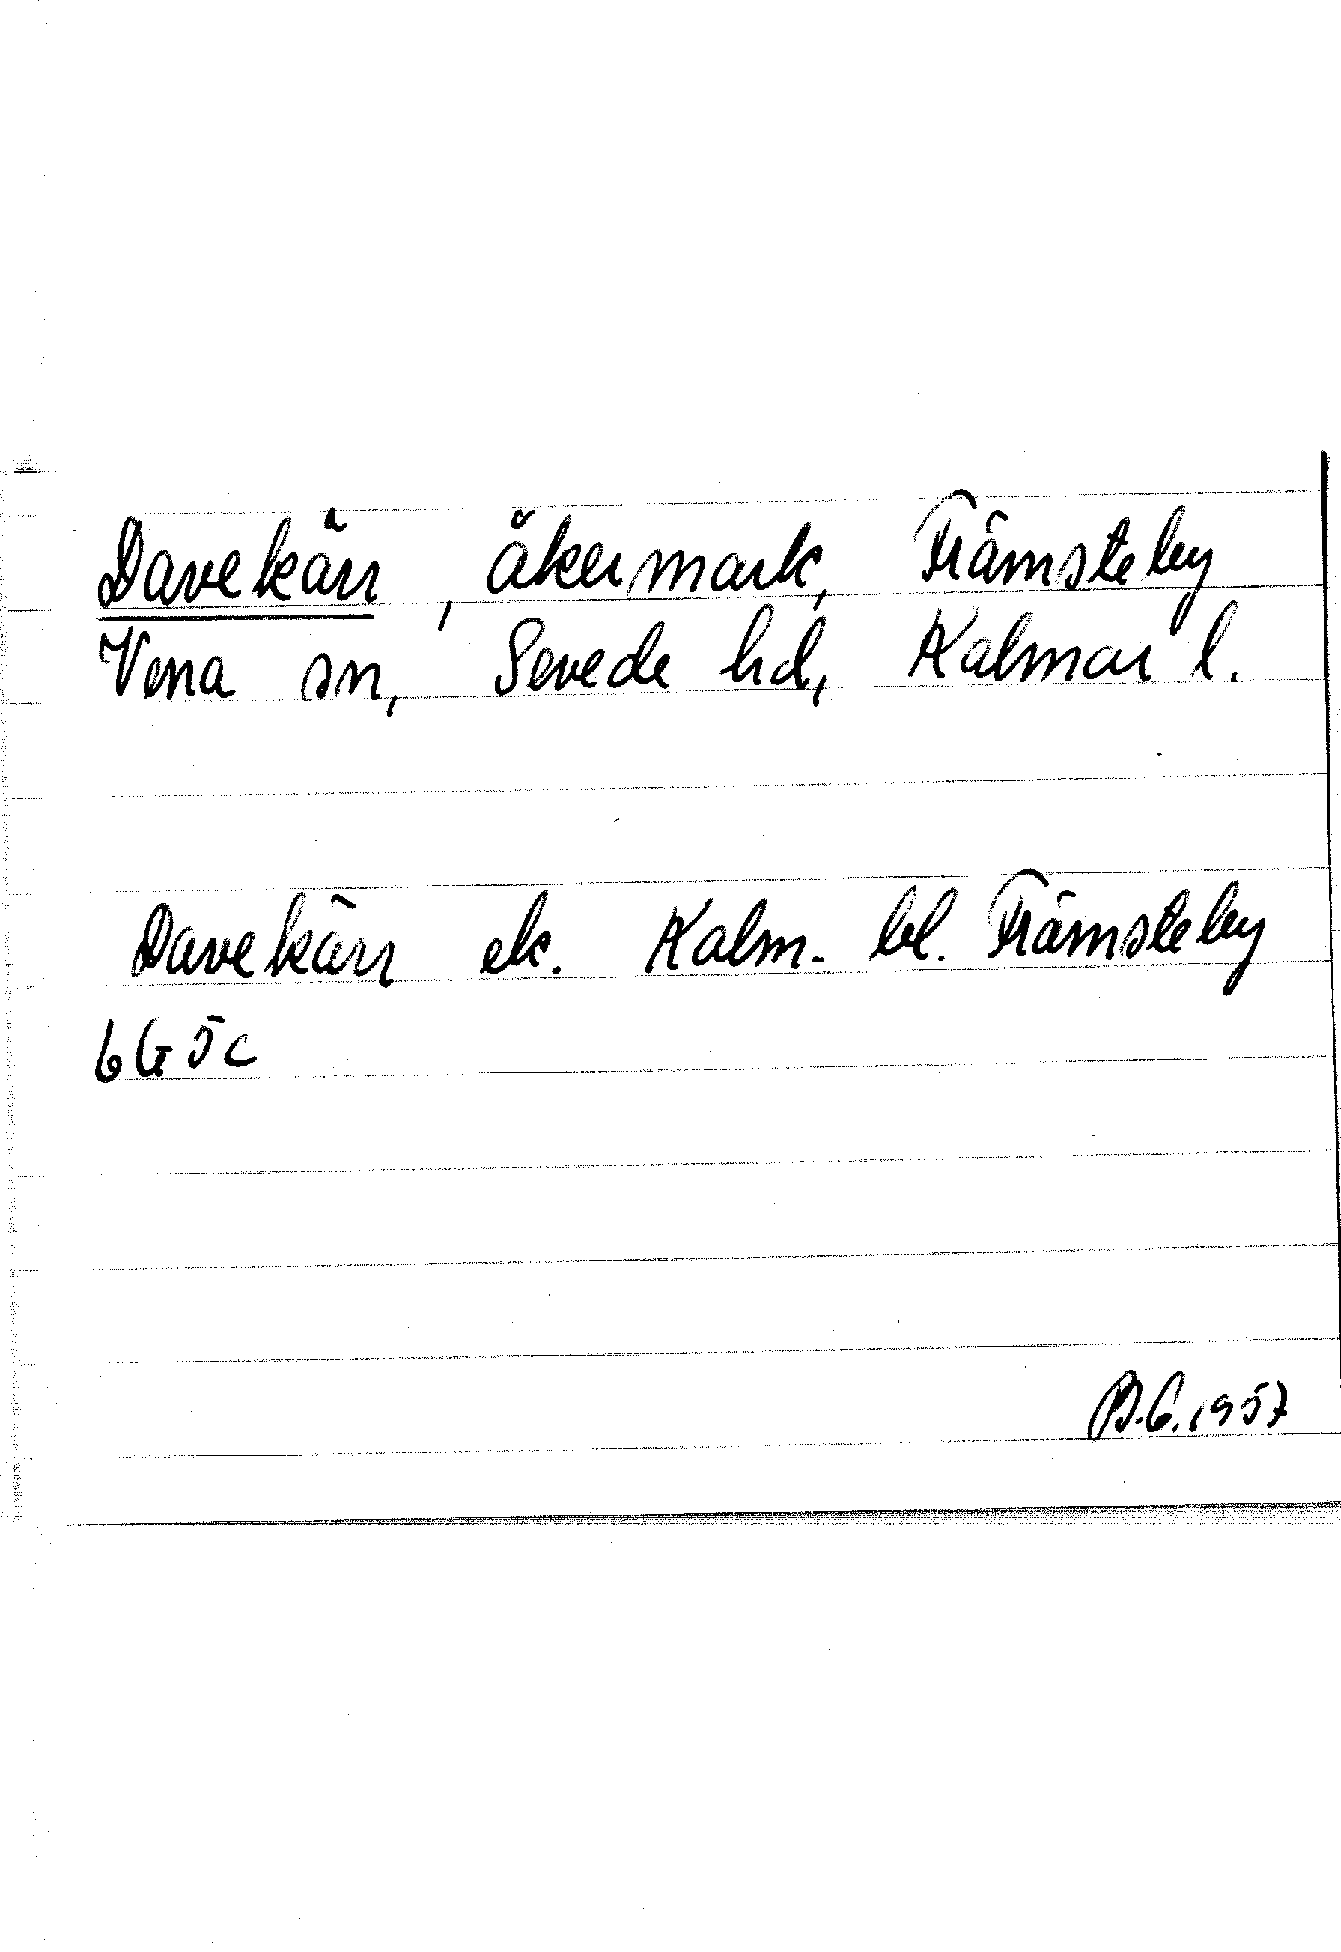 Davekärr, åkermark, Främsteby
Vena sn, Sevede hd, Kalmar l.
Davekärr ek. Kalm. bl. Främsteby
6G5c
B.G. 1957